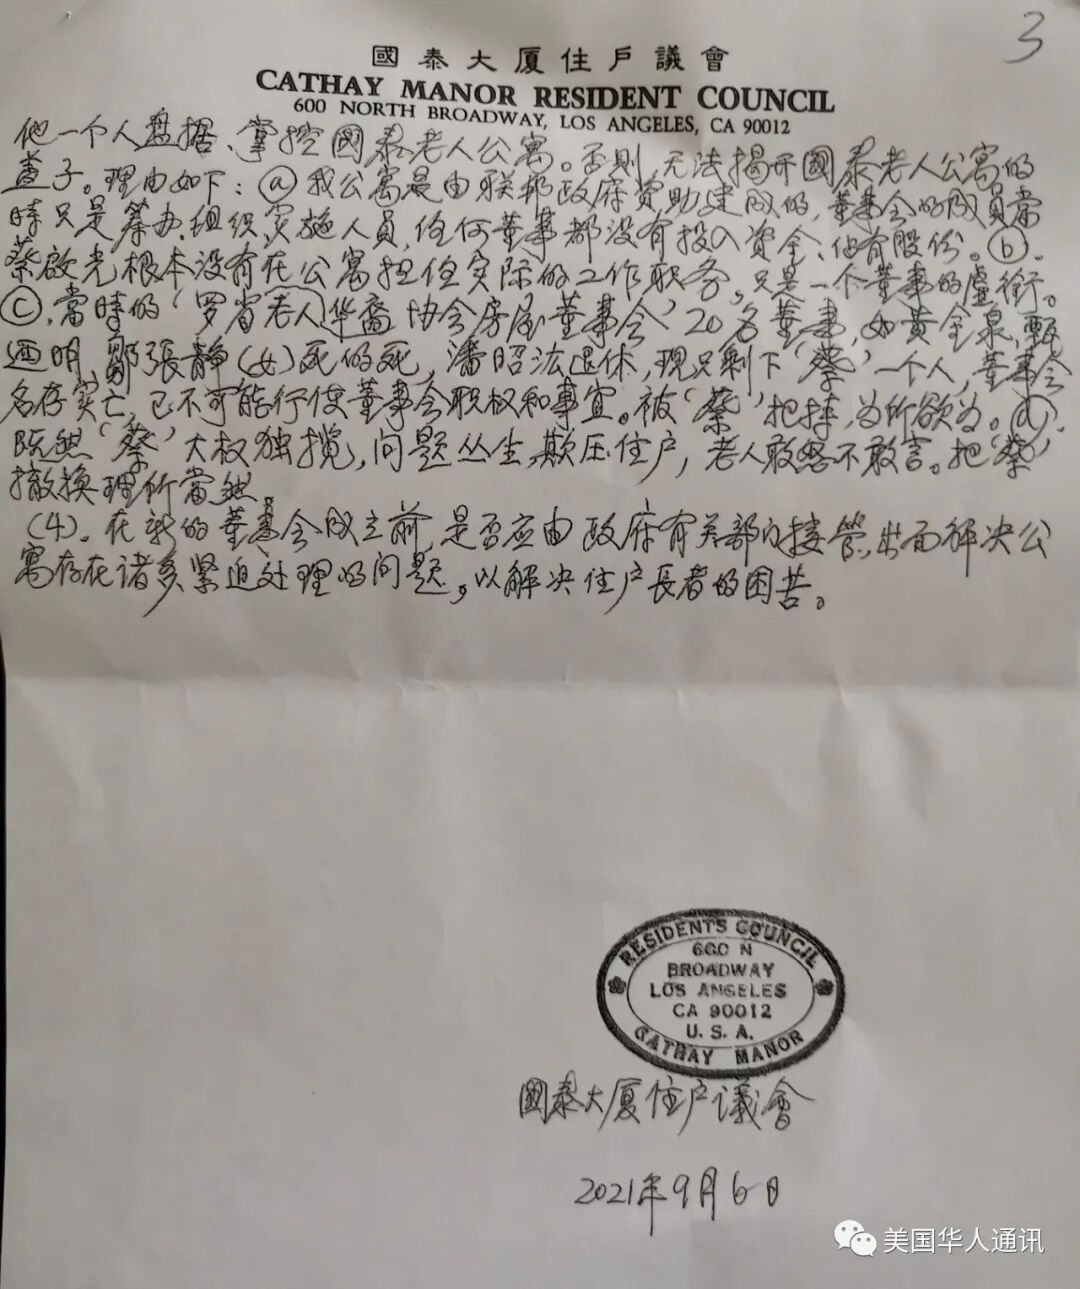 3
國泰大厦住戶議會
CATHAY MANOR RESIDENT COUNCIL
600 NORTH BROADWAY, LOS ANGELES, CA 90012
他一个人盘据、掌控國泰老人公寓。否则无法揭开國泰老人公寓的
盖子。理由如下：ⓐ我公寓是由联邦政府资助建成的，董事会的成员当
時只是筹办、组织、实施人员，任何董事都没有投入资金、佔有股份。ⓑ.
蔡啟光根本没有在公寓担任实际的工作职务，只是一个董事的虚銜。
ⓒ.當時的‘罗省老人华裔协会房屋董事会’20名董事，如黄金泉，甄
迺明、鄒張静（女）死的死，潘昭法退休，现只剩下‘蔡’一个人，董事会
名存实亡，已不可能行使董事会职权和事宜。被‘蔡’把持，为所欲为。ⓓ.
既然‘蔡’大权独揽，问题丛生，欺压住户，老人敢怒不敢言。把‘蔡’
撤换理所當然。
（4）. 在新的董事会成立前，是否应由政府有关部门接管，出面解决公
寓存在诸多紧迫处理的问题，以解决住户長者的困苦。
RESIDENTS COUNCIL
600 N
BROADWAY
LOS ANGELES
CA 90012
U. S. A.
CATHAY MANOR
國泰大厦住户议會
2021年9月6日
美国华人通讯